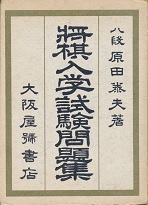 八段 原田泰夫著
将棋入学試験問題集
大阪屋號書店